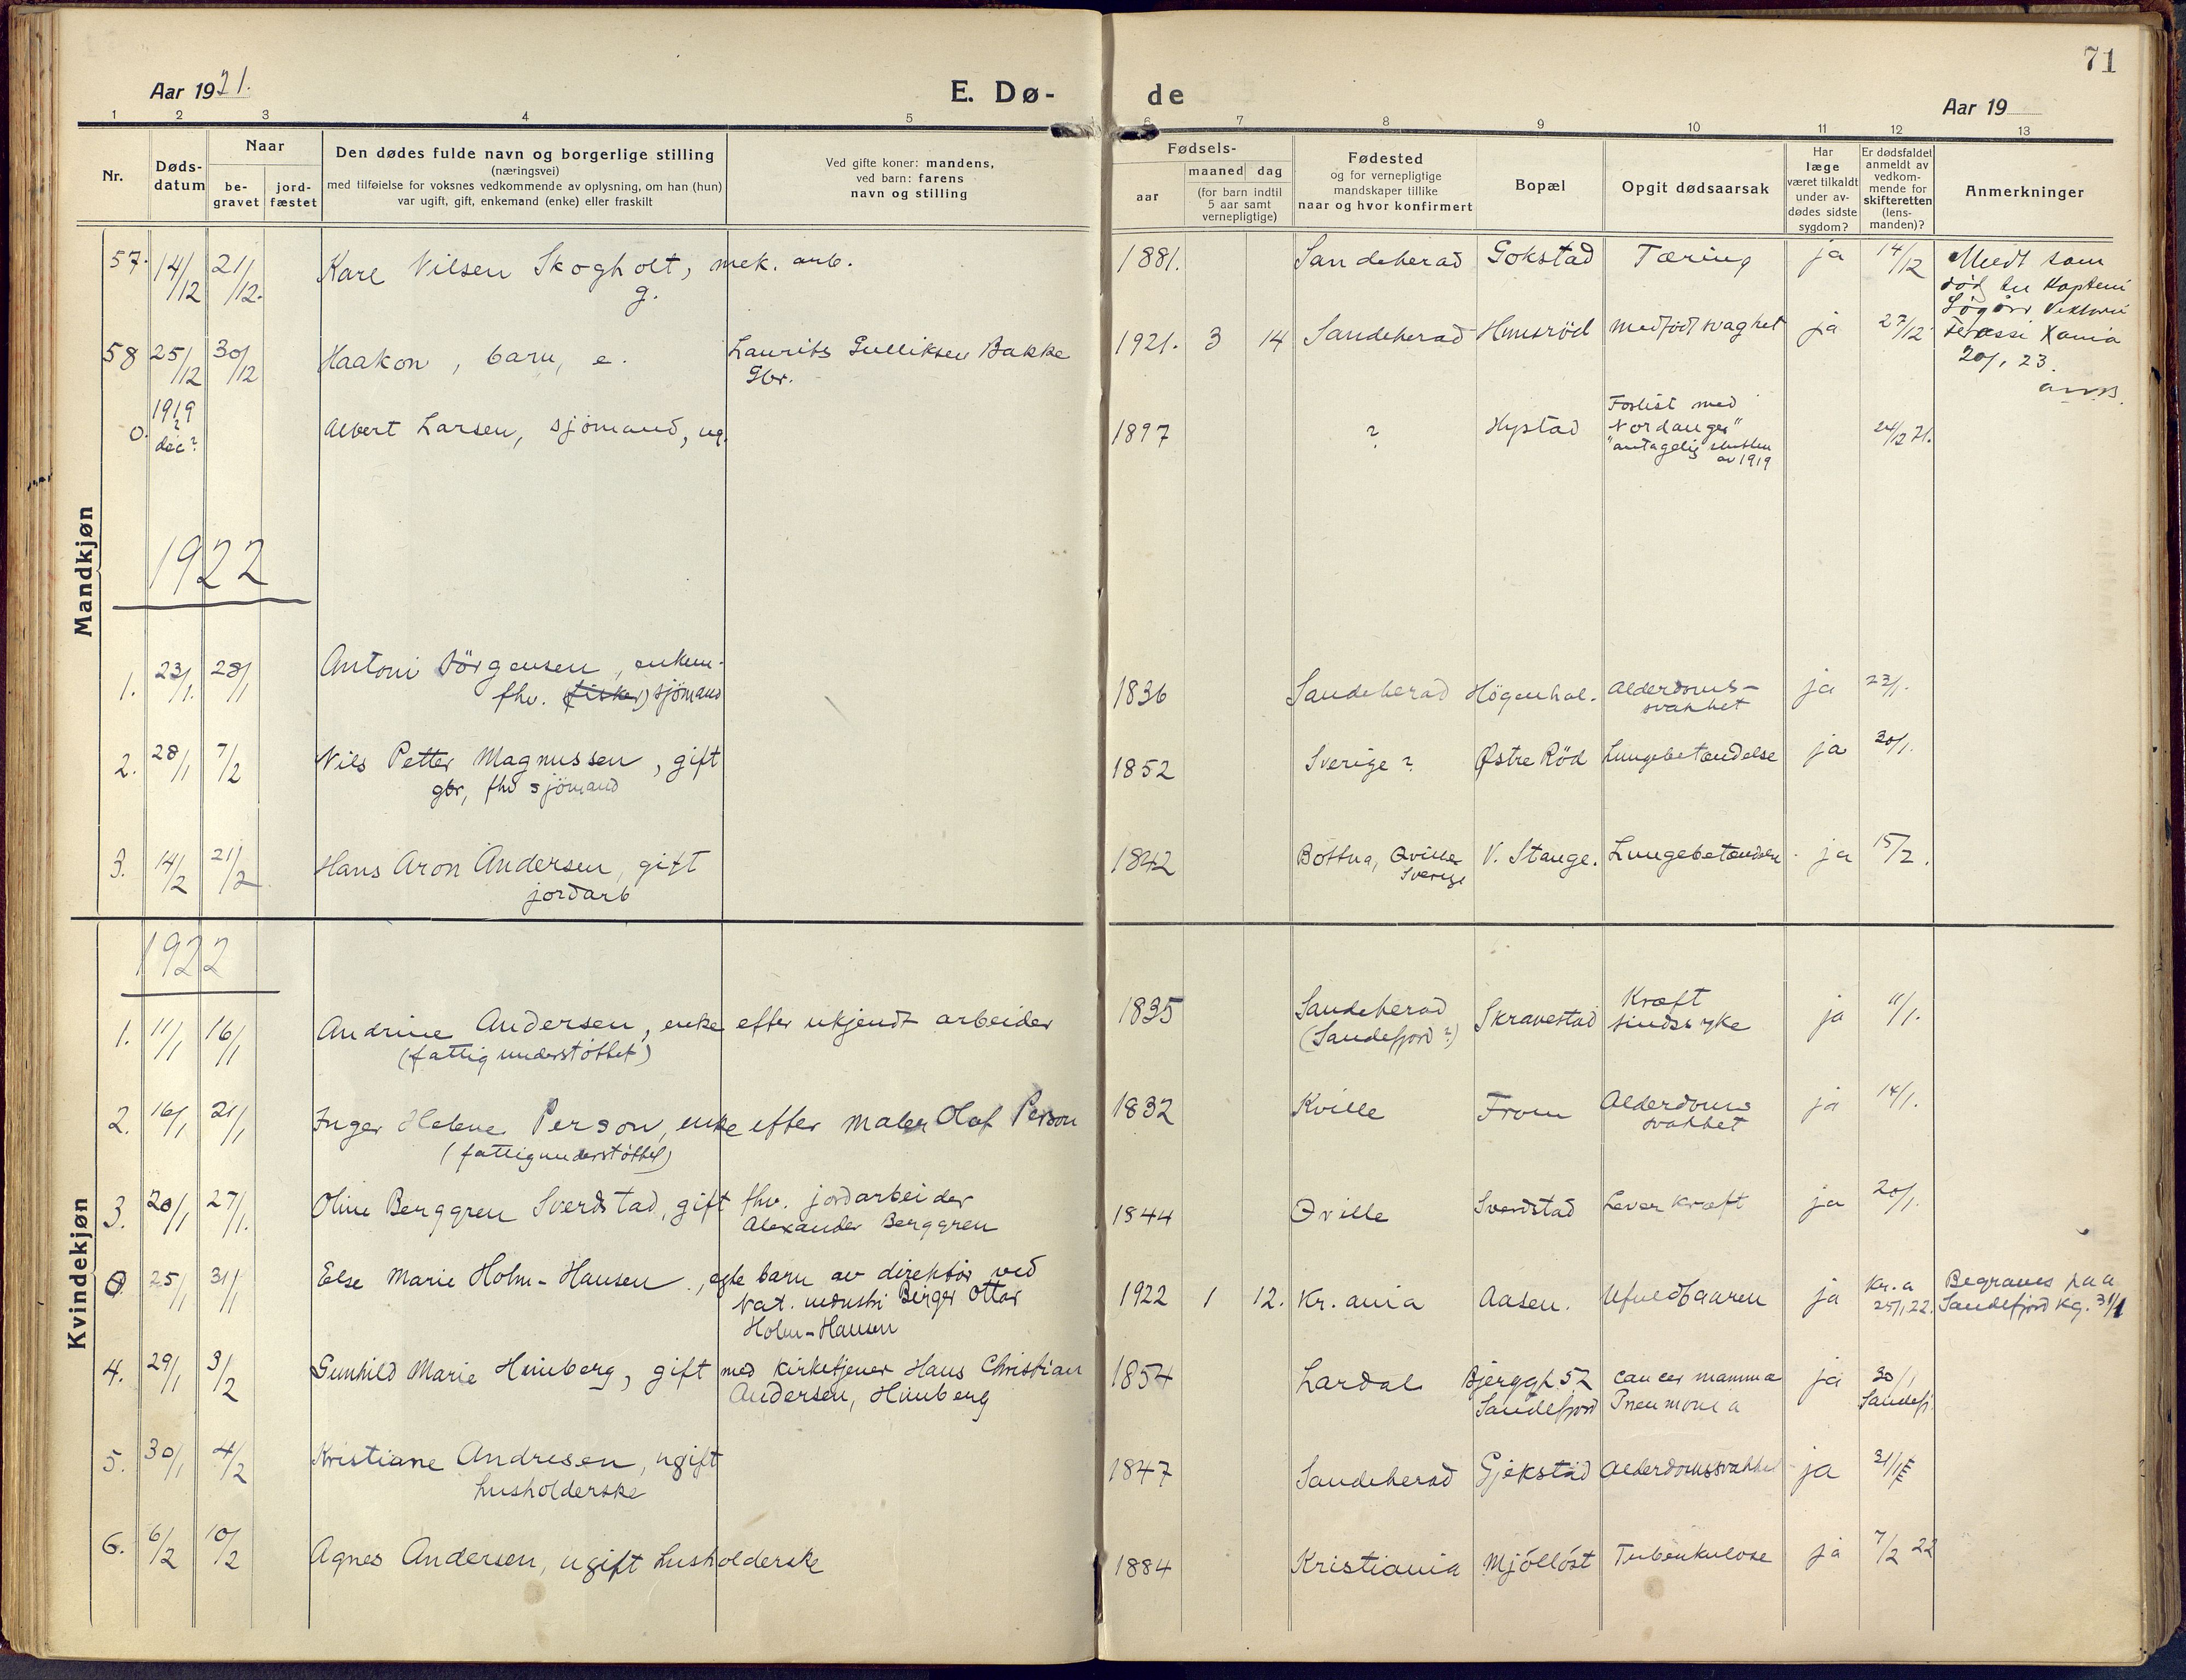 71
Aar 1921.
E. Dø-
de
Aar 19
1 2 3 4 5 6 7 8 9 10 11 12 13
Nr.
Døds-
datum
Naar
be-
gravet
jord-
fæstet
Den dødes fulde navn og borgerlige stilling
(næringsvei)
med tilføielse for voksnes vedkommende av oplysning, om han (hun)
var ugift, gift, enkemand (enke) eller fraskilt
Ved gifte koner: mandens,
ved barn: farens
navn og stilling
Fødsels-
aar
maaned dag
(for barn indtil
5 aar samt
vernepligtige)
Fødested
og for vernepligtige
mandskaper tillike
naar og hvor konfirmert
Bopæl
Opgit dødsaarsak
Har
læge
været tilkaldt
under av-
dødes sidste
sygdom?
Er dødsfaldet
anmeldt av
vedkom-
mende for
skifteretten
(lens-
manden)?
Anmerkninger
Mandkjøn
57. 14/12 21/12. Karl Nilsen Skogholt, mek. arb.
g.
1881. Sandeherad Gokstad Tæring ja 14/12 Meldt som
død
Kania
20/1 23.
58 25/12 30/12 Haakon, barn, e. Laurits Gulliksen Bakke
Gbr.
1921. 3 14 Sandeherad Hunsröd medfödt svaghet ja 27/12
0. 1919
?
dec?
Albert Larsen, sjømand, ug.
1897 ? Hystad Forlist med
"Nordanger"
antagelig slutten
av 1919
24/12 21.
1922
1. 23/1. 28/1 Antoni Jörgensen, enkem.
fhv. (fisker) sjömand
1836 Sandeherad Högenhal. Alderdoms-
svakhet
ja 23/1.
2. 28/1 7/2 Nils Petter Magnussen, gift
gbr, fhv sjömand
1852 Sverige? Østre Röd Lungebetændelse ja 30/1.
3. 14/2 21/2 Hans Aron Andersen, gift
jordarb
1842 Bottna, Qville
Sverige
V. Stange. Lungebetændelse ja 15/2.
Kvindekjøn
1922
1. 11/1 16/1 Andrine Andersen, enke efter ukjendt arbeider
(fattigunderstöttet)
1835 Sandeherad
(Sandefjord?)
Skravestad Kræft
sindssyke
ja 11/1.
2. 16/1 21/1 Inger Helene Person, enke efter maler Olof Person
(fattigunderstöttet)
1832 Kville From Alderdoms
svakhet
ja 14/1.
3. 20/1 27/1. Oline Berggren Sverdstad, gift fhv. jordarbeider
Alexander Berggren
1844 Qville Sverdstad Leverkræft ja 20/1.
0 25/1 31/1 Else Marie Holm-Hansen, egte barn av direktör ved
Nat. industri Birger Ottar
Holm-Hansen
1922 1 12. Kr.ania Aasen. Ufuldbaaren ja Kr.a
25/1 22.
Begraves paa
Sandefjord kg. 31/1
4. 29/1 3/2 Gunhild Marie Hunberg, gift med kirketjener Hans Christian
Andersen, Hunberg
1854 Lardal Bjerggt 52
Sandefjord
cancer mamma
Pneumonia
ja 30/1
Sandefj.
5. 30/1 4/2 Kristiane Andresen, ugift
husholderske
1847 Sandeherad Gjekstad Alderdomssvakhet ja 31/1
6. 6/2 10/2 Agnes Andersen, ugift husholderske
1884 Kristiania Mjölløst Tuberkulose ja 7/2 22